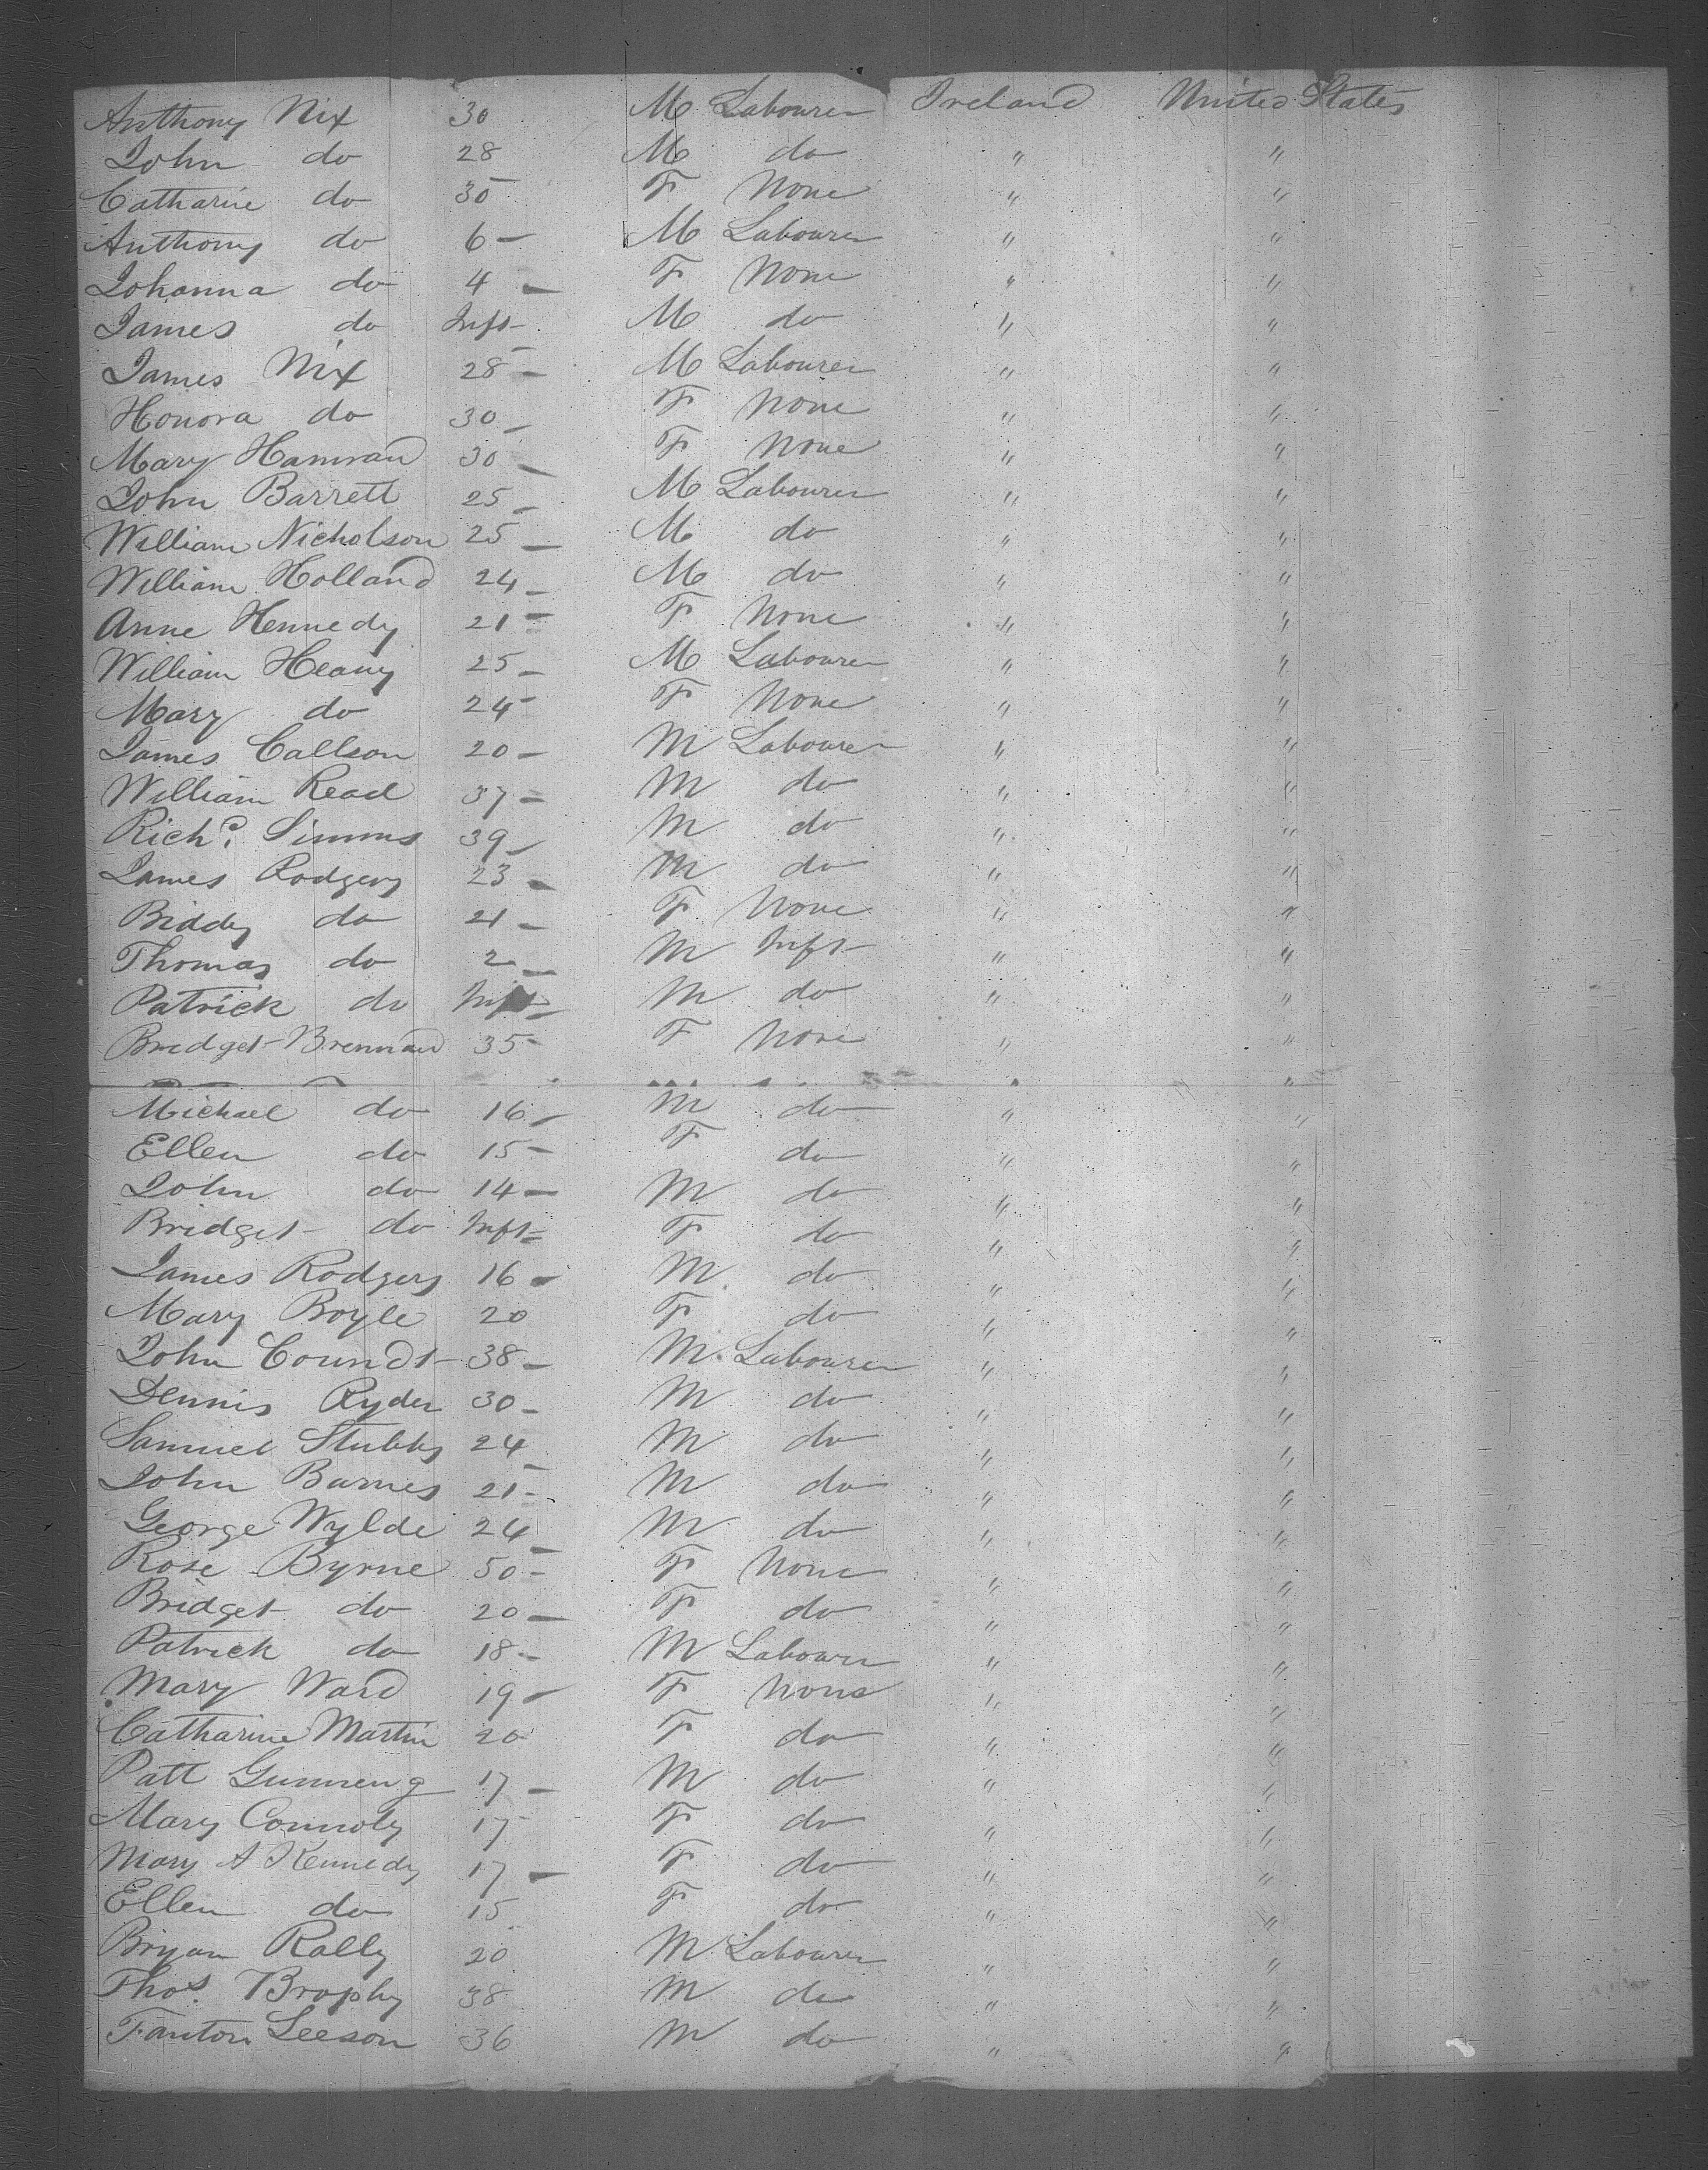 Anthony Nix 30 M Labourer Ireland United States
John do 28 M do " "
Catharine do 30 F None " "
Anthony do 6 - M Labourer " "
Johanna do 4 - F None " "
James do Inft - M do " "
James Nix 28 - M Labourer " "
Honora do 30 - F None " "
Mary Hanran 30 - F None " "
John Barrett 25 - M Labourer " "
William Nicholson 25 - M do " "
William Holland 24 - M do " "
Anne Kennedy 21 - F None " "
William Heany 25 - M Labourer " "
Mary do 24 - F None " "
James Callson 20 - M Labourer " "
William Read 37 - M do " "
Richd. Simms 39 - M do " "
James Rodgers 23 - M do " "
Biddy do 21 - F None " "
Thomas do 2 - M Inft " "
Patrick do Inft - M do " "
Bridget Brennan 35 - F None " "
Michael do 16 - M do " "
Ellen do 15 - F do " "
John do 14 - M do " "
Bridget do Inft - F do " "
James Rodgers 16 - M do " "
Mary Boyle 20 F do " "
John 38 - M Labourer " "
Dennis Ryder 30 - M do " "
Samuel Stubbs 24 - M do " "
John Barnes 21 - M do " "
George Wylde 24 - M do " "
Rose Byrne 50 - F None " "
Bridget do 20 - F do " "
Patrick do 18 - M Labourer " "
Mary Ward 19 - F None " "
Catharine Martin 20 F do " "
Patt 17 - M do " "
Mary Connoly 17 F do " "
Mary A Kennedy 17 - F do " "
Ellen do 15 F do " "
Bryan Rally 20 M Labourer " "
Thos. Brophy 38 M do " "
Fanton Leeson 36 M do " "